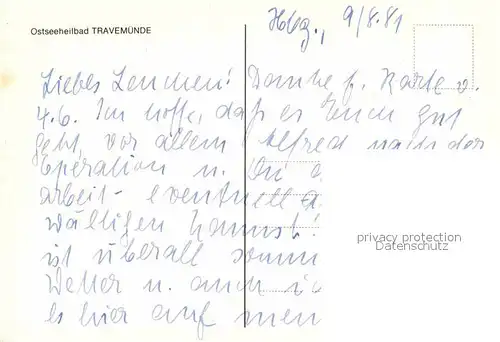 Ostseeheilbad TRAVEMÜNDE
Hbg., 9/8.81
Liebes Lenchen! Danke f. Karte v.
4.6. Ich hoffe, daß es Euch gut
geht, vor allem Alfred nach der
Operation u. Du
arbeit- eventuell
wältigen kannst!
ist überall
Wetter u. auch
es hier auf
privacy protection
Datenschutz